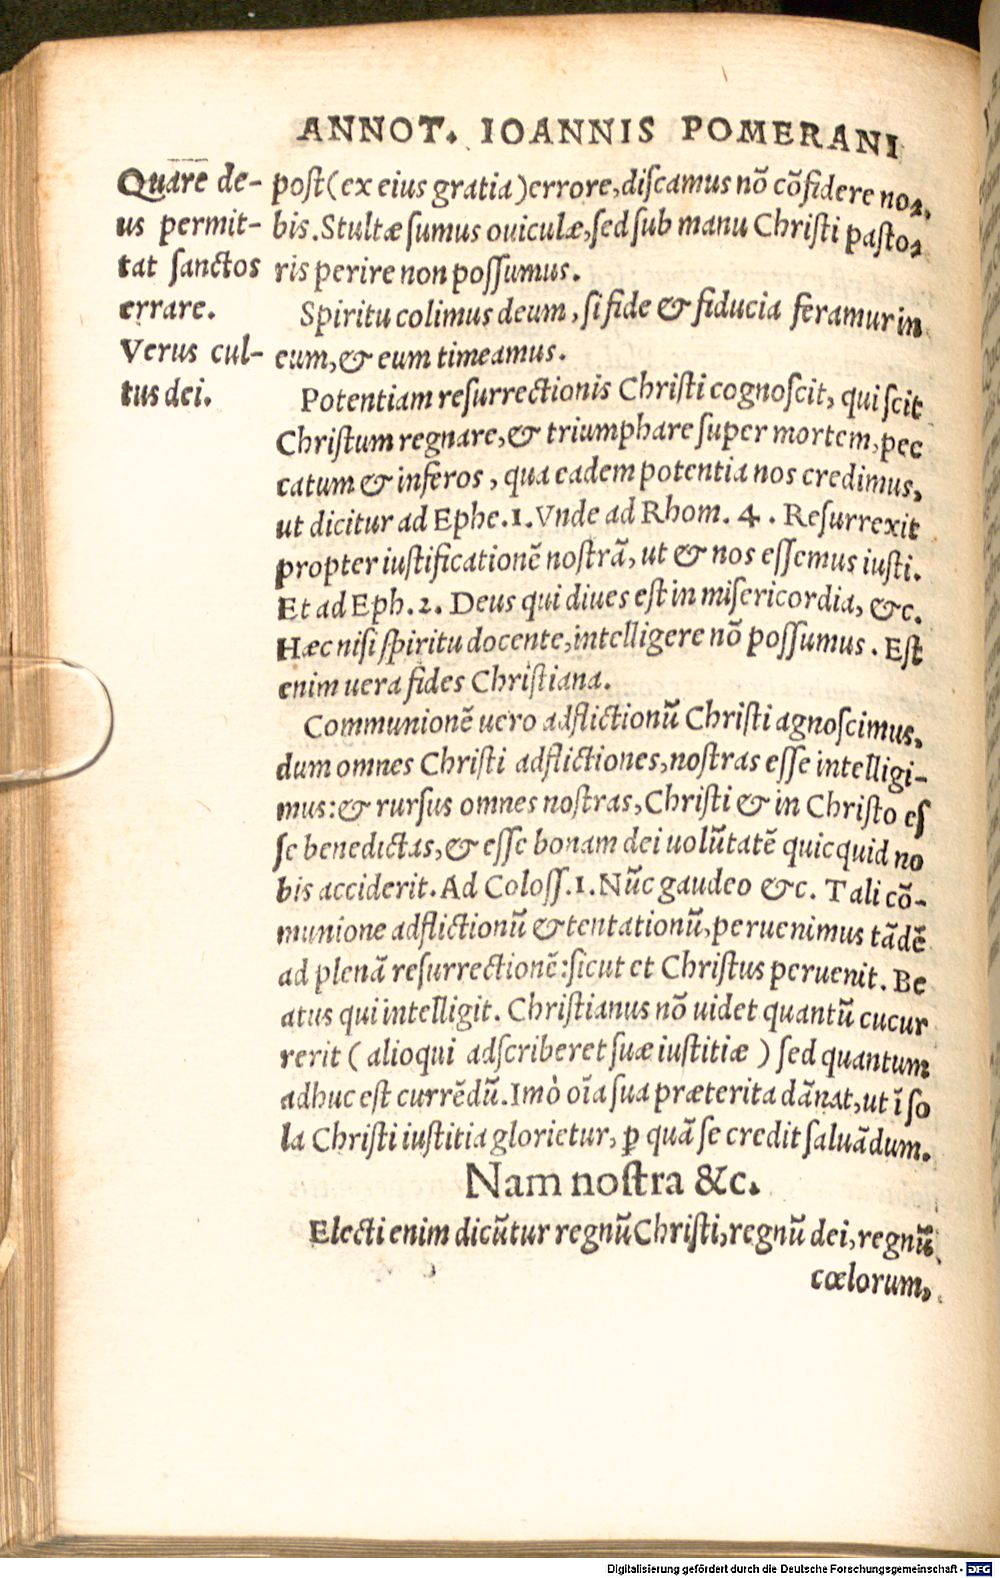 ANNOT. IOANNIS POMERANI
Quare de-
us permit-
tat sanctos
errare.
Verus cul-
tus dei.
post (ex eius gratia) errore, discamus nõ cõfidere no-
bis. Stultæ sumus ouiculæ, sed sub manu Christi pasto-
ris perire non possumus.
Spiritu colimus deum, si fide & fiducia feramur in
eum, & eum timeamus.
Potentiam resurrectionis Christi cognoscit, qui scit
Christum regnare, & triumphare super mortem, pec
catum & inferos, qua eadem potentia nos credimus,
ut dicitur ad Ephe. 1. Vnde ad Rhom. 4. Resurrexit
propter iustificationẽ nostrã, ut & nos essemus iusti.
Et ad Eph. 2. Deus qui diues est in misericordia, &c.
Hæc nisi spiritu docente, intelligere nõ possumus. Est
enim uera fides Christiana.
Communionẽ uero adflictionũ Christi agnoscimus,
dum omnes Christi adflictiones, nostras esse intelligi-
mus: & rursus omnes nostras, Christi & in Christo es
se benedictas, & esse bonam dei uolũtatẽ quicquid no
bis acciderit. Ad Coloss. 1. Nũc gaudeo &c. Tali cõ-
munione adflictionũ & tentationũ, peruenimus tãdẽ
ad plenã resurrectionẽ: sicut et Christus peruenit. Be
atus qui intelligit. Christianus nõ uidet quantũ cucur
rerit (alioqui adscriberet suæ iustitiæ) sed quantum
adhuc est currẽdũ. Imò oĩa sua præterita dãnat, ut ĩ so
la Christi iustitia glorietur, ꝑ quã se credit saluãdum.
Nam nostra &c.
Electi enim dicũtur regnũ Christi, regnũ dei, regnũ
cœlorum,
Digitalisierung gefördert durch die Deutsche Forschungsgemeinschaft - DFG